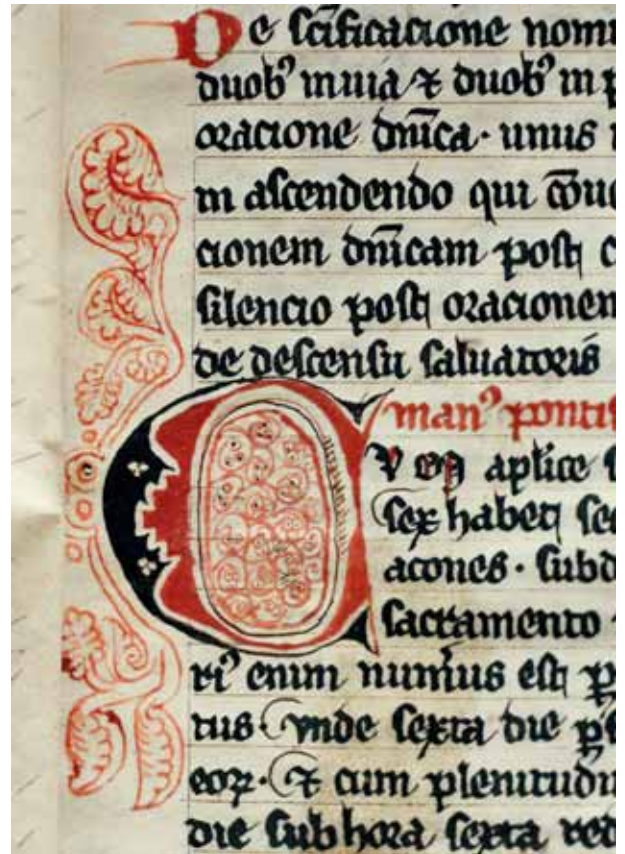 De sc̄ificacione nomi
duob⁹ in uia ⁊ duob⁹ in p
oracione dn̄ica · unus
in ascendendo qui
cionem dn̄icam post c
silencio post oracionem
de descensu saluatoris
man⁹ ponti
aplice s
sex habet se
acones · subd
sacramento
ri⁹ enim num̄us est
tus vnde sexta die
eoꝝ · Et cum plenitudi
die sub hora sexta red